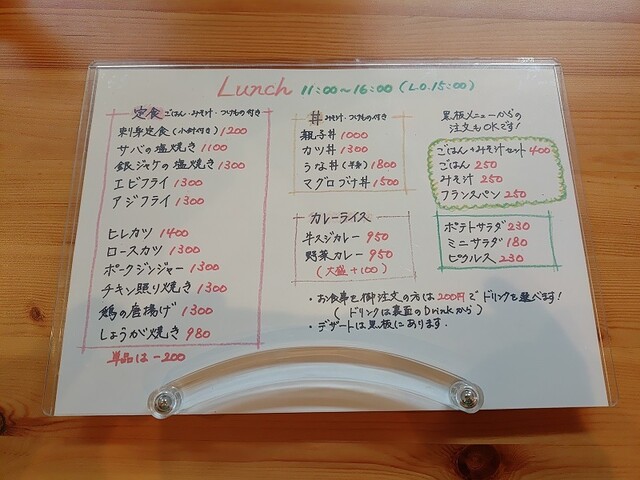 Lunch 11:00~16:00 (L.O.15:00)
定食 ごはん・みそ汁・つけもの付き
刺身定食(小鉢付き) 1200
サバの塩焼き 1100
銀ジャケの塩焼き 1300
エビフライ 1300
アジフライ 1300
ヒレカツ 1400
ロースカツ 1300
ポークジンジャー 1300
チキン照り焼き 1300
鶏の唐揚げ 1300
しょうが焼き 980
単品は-200
丼 みそ汁・つけもの付き
親子丼 1000
カツ丼 1300
うな丼(半身) 1800
マグロづけ丼 1500
カレーライス
牛スジカレー 950
野菜カレー 950
(大盛+100)
黒板メニューからの
注文もOKです!
ごはん+みそ汁セット 400
ごはん 250
みそ汁 250
フランスパン 250
ポテトサラダ 230
ミニサラダ 180
ピクルス 230
・お食事を御注文の方は200円でドリンクを選べます!
(ドリンクは裏面のDrinkから)
・デザートは黒板にあります。